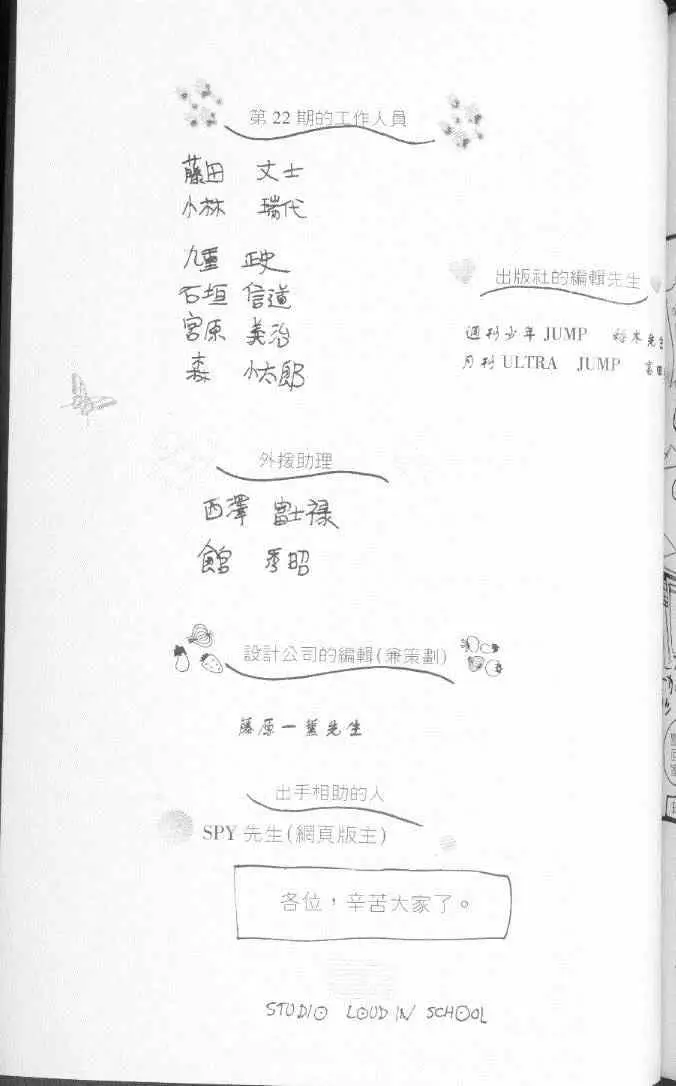 第 22 期的工作人員
藤田 丈士
小林 瑞代
九重 政史
石垣 信道
宮原 義治
森 小太郎
出版社的編輯先生
週刊少年 JUMP
月刊 ULTRA JUMP
外援助理
西澤 富士祿
館 秀昭
設計公司的編輯(兼策劃)
藤原一 先生
出手相助的人
SPY 先生(網頁版主)
各位，辛苦大家了。
STUDIO LOUD IN SCHOOL